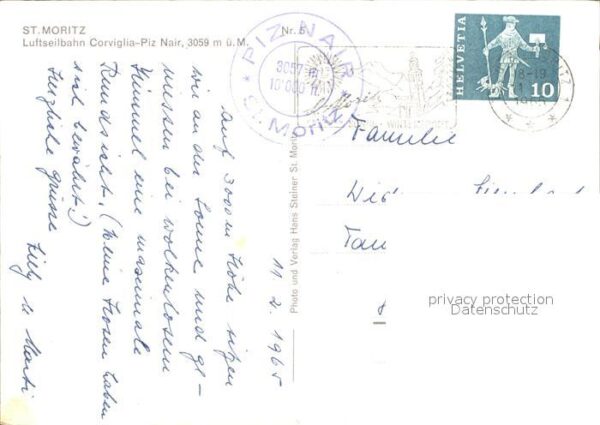 ST. MORITZ
Luftseilbahn Corviglia-Piz Nair, 3059 m ü. M.
Nr. 5
PIZ NAIR
3057 m
10'000 ft
St. Moritz
HELVETIA
10
Auf 3000 m Höhe sitzen
wir an der Sonne und ge-
niessen bei wolkenlosem
Himmel eine maximale
Rundsicht. (Deine Hosen haben
sich bewährt!)
Herzliche Grüsse
11. 2. 1965
Photo und Verlag Hans Steiner St. Moritz
Familie
privacy protection
Datenschutz